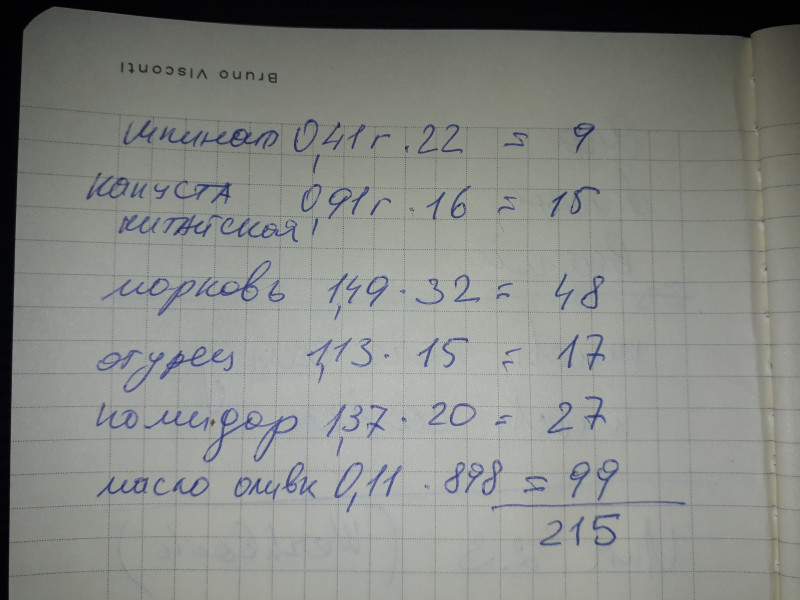 Bruno Visconti
шпинат 0,41 г . 22 = 9
капуста 0,91 г . 16 = 15
китайская
морковь 1,49 . 32 = 48
огурец 1,13 . 15 = 17
помидор 1,37 . 20 = 27
масло оливк 0,11 . 898 = 99
215